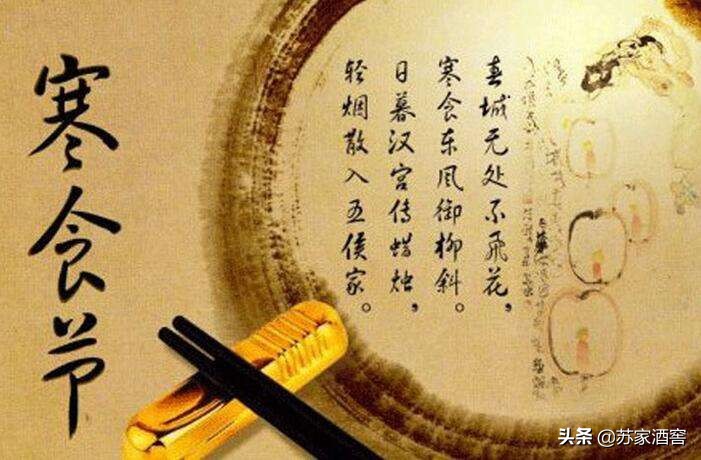 寒食节
春城无处不飞花，
寒食东风御柳斜。
日暮汉宫传蜡烛，
轻烟散入五侯家。
头条 @苏家酒窖